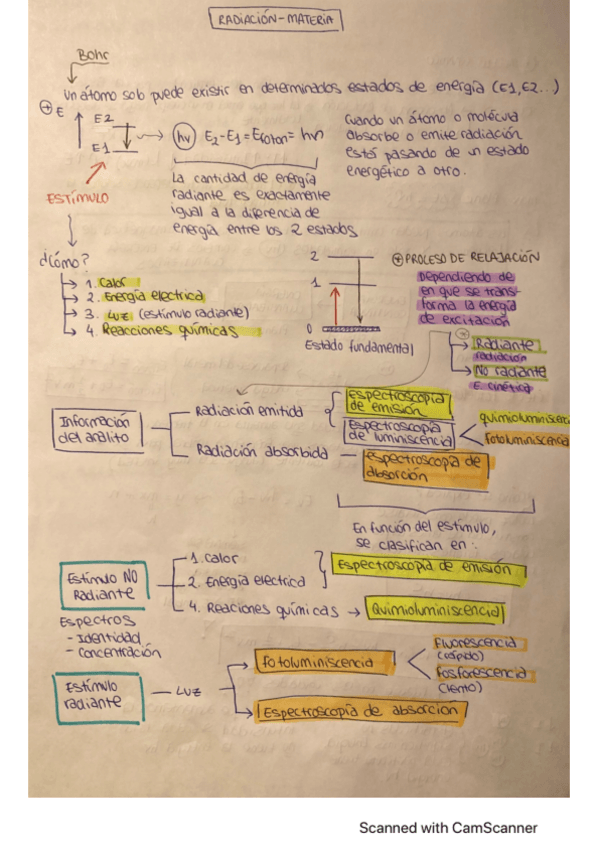 RADIACIÓN-MATERIA
Bohr
Un átomo solo puede existir en determinados estados de energía (E1, E2...)
⊕ E
E2
E1
hν
E2-E1 = Efotón = hν
Cuando un átomo o molécula
absorbe o emite radiación
está pasando de un estado
energético a otro.
La cantidad de energía
radiante es exactamente
igual a la diferencia de
energía entre los 2 estados
ESTÍMULO
¿Cómo?
1. Calor
2. Energía electrica
3. Luz (estímulo radiante)
4. Reacciones químicas
2
1
0
Estado fundamental
⊕ PROCESO DE RELAJACIÓN
Dependiendo de
en que se trans-
forma la energía
de excitación
Radiante
radiación
No radiante
E. cinética
Información
del analito
Radiación emitida
Espectroscopia
de emisión
Espectroscopía
de luminiscencia
quimioluminiscencia
fotoluminiscencia
Radiación absorbida
espectroscopía de
absorción
En función del estímulo,
se clasifican en:
Estímulo NO
Radiante
1. Calor
2. Energía electrica
Espectroscopía de emisión
4. Reaciones químicas
Quimioluminiscencia
Espectros
- Identidad
- Concentración
Estímulo
radiante
Luz
Fotoluminiscencia
Fluorescencia
(rápido)
fosforescencia
(lento)
Espectroscopía de absorción
Scanned with CamScanner